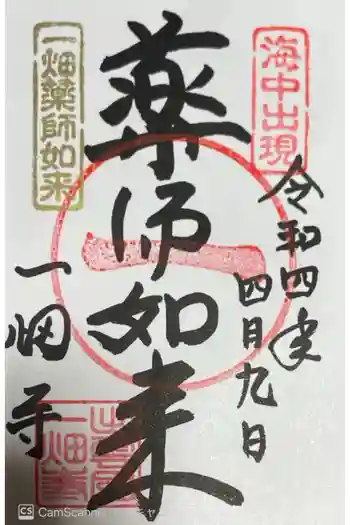 海中出現
令和四年
四月九日
薬师如来
一畑薬師如来
一畑寺
一
出雲國
一畑寺
CS CamScanner